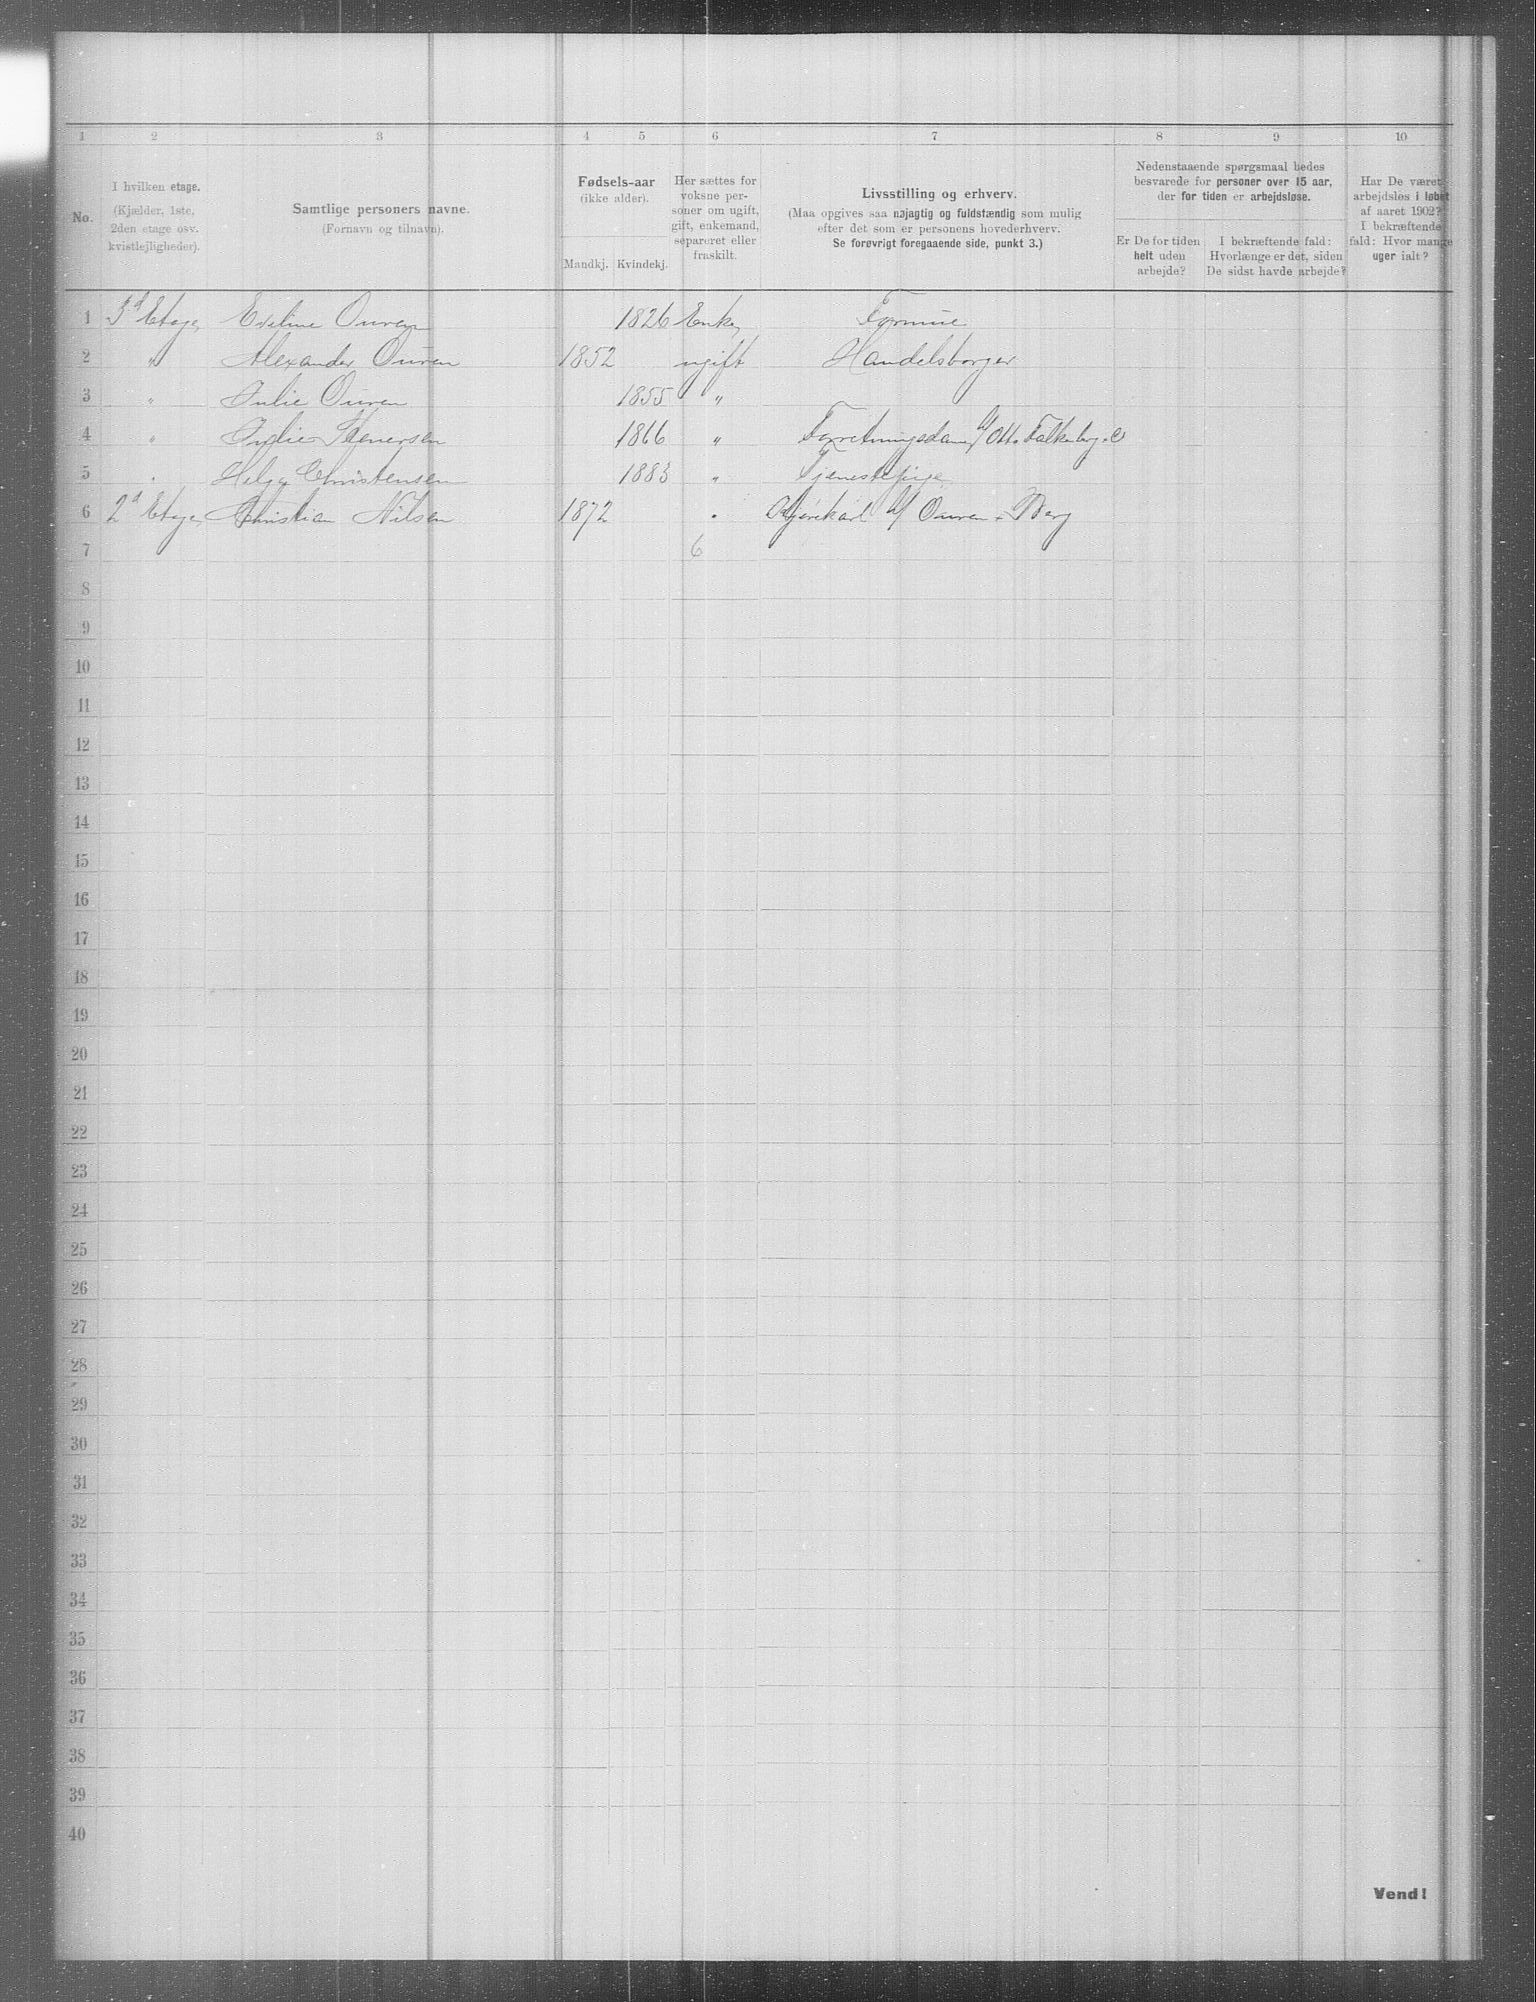 1 2 3 4 5 6 7 8 9 10
No.
I hvilken etage.
(Kjælder, 1ste,
2den etage osv.
kvistlejligheder).
Samtlige personers navne.
(Fornavn og tilnavn).
Fødsels-aar
(ikke alder).
Mandkj. Kvindekj.
Her sættes for
voksne per-
soner om ugift,
gift, enkemand,
separeret eller
fraskilt.
Livsstilling og erhverv.
(Maa opgives saa nøjagtig og fuldstændig som mulig
efter det som er personens hovederhverv.
Se forøvrigt foregaaende side, punkt 3.)
Nedenstaaende spørgsmaal bedes
besvarede for personer over 15 aar,
der for tiden er arbejdsløse.
Er De for tiden
helt uden
arbejde?
I bekræftende fald:
Hvorlænge er det, siden
De sidst havde arbejde?
Har De været
arbejdsløs i løbet
af aaret 1902?
I bekræftende
fald: Hvor mange
uger ialt?
1 3d Etage Eveline Ouren 1826 Enke Formue
2 " Alexander Ouren 1852 ugift Handelsborger
3 " Julie Ouren 1855 "
4 " Stenersen 1866 " Forretningsdame b/ Otto Falkenberg & C
5 " Helga Christensen 1883 " Tjenestepige
6 2d Etage Christian Nilsen 1872 " Kjørekarl b/ Ouren & Berg
7 6
8
9
10
11
12
13
14
15
16
17
18
19
20
21
22
23
24
25
26
27
28
29
30
31
32
33
34
35
36
37
38
39
40
Vend!